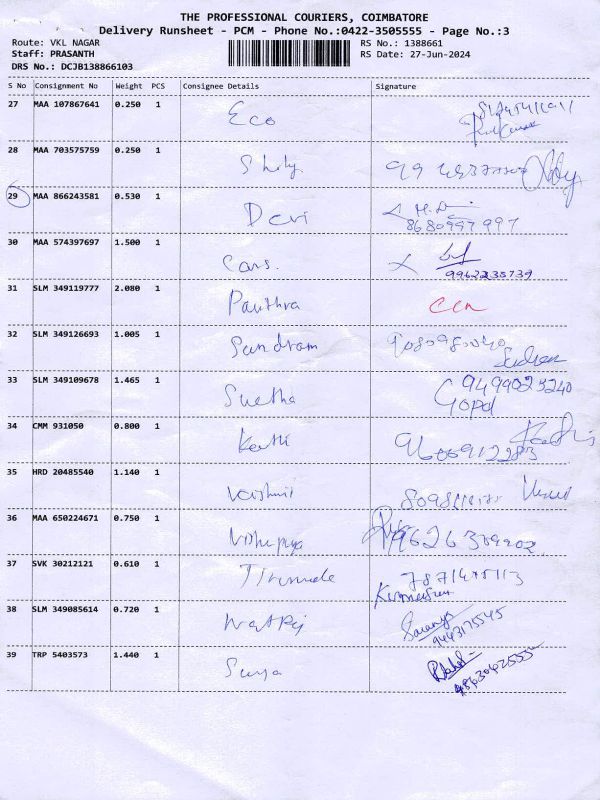 THE PROFESSIONAL COURIERS, COIMBATORE
Delivery Runsheet - PCM - Phone No.:0422-3505555 - Page No.:3
Route: VKL NAGAR
RS No.: 1388661
Staff: PRASANTH
RS Date: 27-Jun-2024
DRS No.: DCJB138866103
S No Consignment No Weight PCS Consignee Details Signature
27 MAA 107867641 0.250 1 Eco
28 MAA 703575759 0.250 1
29 MAA 866243581 0.530 1 Devi 8680997997
30 MAA 574397697 1.500 1 Cans. 9962235739
31 SLM 349119777 2.080 1 Pavithra
32 SLM 349126693 1.005 1 Sundram 9080980040
33 SLM 349109678 1.465 1 Suetha 9499023240
Gopal
34 CMM 931050 0.800 1 Kathi 9600912283
35 HRD 20485540 1.140 1
36 MAA 650224671 0.750 1 Vishnupriya
37 SVK 30212121 0.610 1
38 SLM 349085614 0.720 1 Saranya
9443175545
39 TRP 5403573 1.440 1 Surya